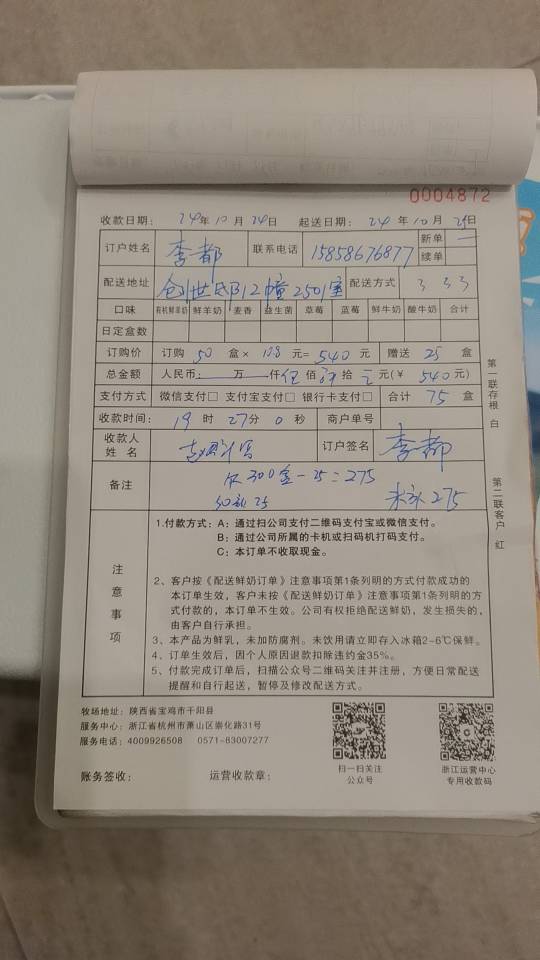 0004872
收款日期： 24年10月24日 起送日期： 24年10月25日
订户姓名 李都 联系电话 15858676877 新单 续单
配送地址 创世 B12幢2501室 配送方式 3 3 3
口味 有机鲜羊奶 鲜羊奶 麦香 益生菌 草莓 蓝莓 鲜牛奶 酸牛奶 合计
日定盒数
订购价 订购 50 盒× 108 元= 540 元 赠送 25 盒
总金额 人民币： 万 仟 伍 佰 肆 拾 元(￥ 540元)
支付方式 微信支付□ 支付宝支付□ 银行卡支付□ 合计 75 盒
收款时间： 19 时 27分 0 秒 商户单号
收款人姓名 订户签名 李都
备注 欠300盒-25=275
50 25 275
第一联存根 白
第二联客户 红
注意事项
1.付款方式： A：通过扫公司支付二维码支付宝或微信支付。
B：通过公司所属的卡机或扫码机打码支付。
C：本订单不收取现金。
2、客户按《配送鲜奶订单》注意事项第1条列明的方式付款成功的
本订单生效，客户未按《配送鲜奶订单》注意事项第1条列明的方
式付款的，本订单不生效。公司有权拒绝配送鲜奶，发生损失的，
由客户自行承担。
3、本产品为鲜乳，未加防腐剂。未饮用请立即存入冰箱2-6℃保鲜。
4、订单生效后，因个人原因退款扣除违约金35%。
5、付款完成订单后，扫描公众号二维码关注并注册，方便日常配送
提醒和自行起送，暂停及修改配送方式。
牧场地址：陕西省宝鸡市千阳县
服务中心：浙江省杭州市萧山区崇化路31号
服务电话：4009926508 0571-83007277
账务签收： 运营收款章：
扫一扫关注
公众号
浙江运营中心
专用收款码